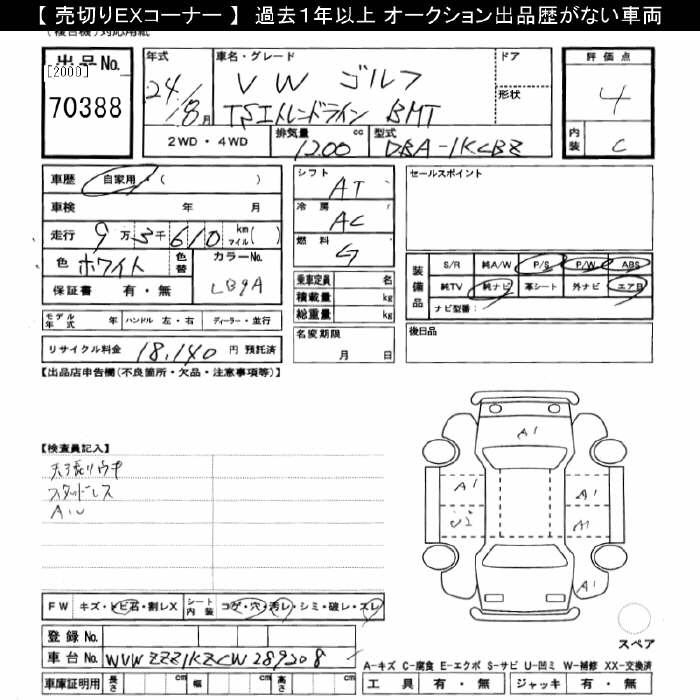 【 売切りEXコーナー 】 過去1年以上 オークション出品歴がない車両
出品No. [2000] 70388
年式 24/8月
車名・グレード VW ゴルフ
TSIトレンドライン BMT
ドア
形状
評価点 4
内装 C
2WD・4WD
排気量 1200 cc
型式 DBA-1KCBZ
車歴 自家用・( )
車検 年 月
走行 9万3千610 km マイル( )
色 ホワイト 色替 カラーNo. LB9A
保証書 有・無
シフト AT
冷房 AC
燃料 G
乗車定員 名
積載量 kg
総重量 kg
名変期限 月 日
セールスポイント
装備品 S/R 純A/W P/S P/W ABS
純TV 純ナビ 革シート 外ナビ エアB
ナビ型番:
後日品
モデル年式 年 ハンドル 左・右 ディーラー・並行
リサイクル料金 18,140 円 預託済
【出品店申告欄(不良箇所・欠品・注意事項等)】
【検査員記入】
天張リウキ
スタッドレス
AIU
A1
A1 A1
A1
A1
FW キズ・トビ石・割レX シート内装 コゲ・穴・汚レ・シミ・破レ・スレ
登録No.
車台No. WVWZZZ1KZCW289208
車庫証明用 長さ cm 幅 cm 高さ cm
スペア
A-キズ C-腐食 E-エクボ S-サビ U-凹ミ W-補修 XX-交換済
工具 有・無 ジャッキ 有・無